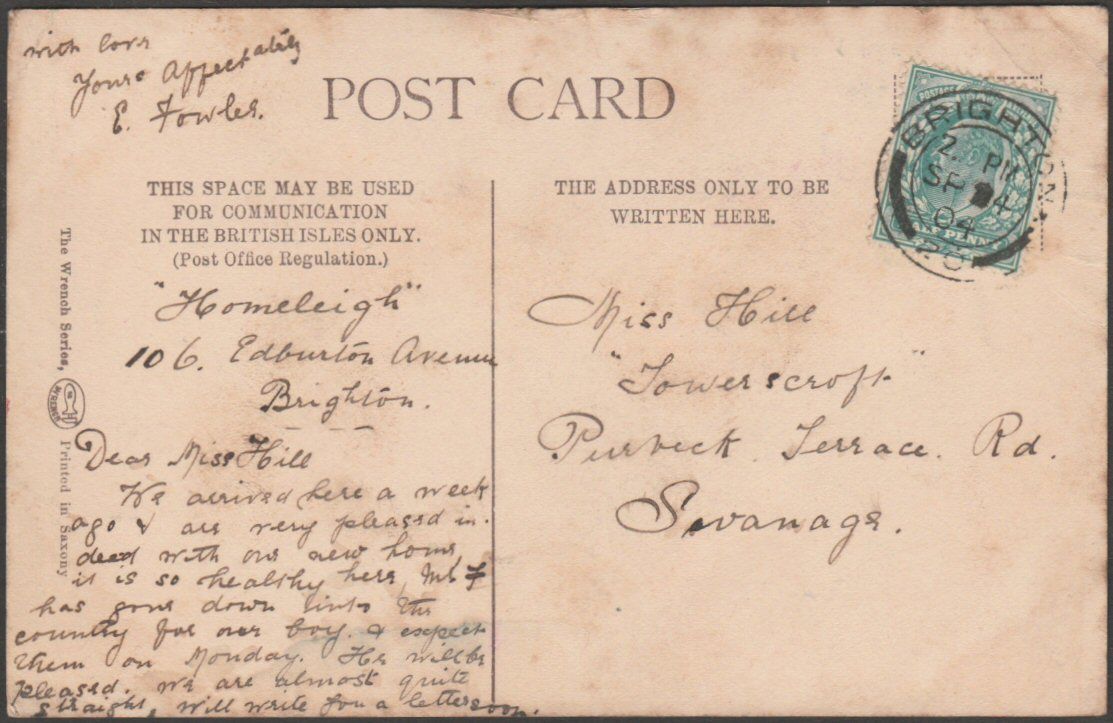 with love
Yours Affectately
E. Fowles.
POST CARD
THIS SPACE MAY BE USED
FOR COMMUNICATION
IN THE BRITISH ISLES ONLY.
(Post Office Regulation.)
THE ADDRESS ONLY TO BE
WRITTEN HERE.
BRIGHTON
2. PM
SP 4
04
POSTAGE
HALF PENNY
The Wrench Series,
WRENCH
Printed in Saxony
"Homeleigh"
106. Edburton Avenue
Brighton.
Dear Miss Hill
We arrived here a week
ago & are very pleased in-
deed with our new home,
it is so healthy here, Mr F
has gone down into the
country for our boy. & expect
them on Monday. He will be
pleased. we are almost quite
straight, will write you a letter soon.
Miss Hill
"Towerscroft"
Purbeck Terrace. Rd.
Swanage.